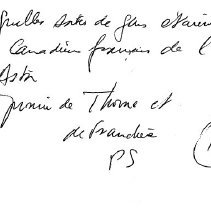 quelles sortes de gens étaient
Canadiens français de l
Astor
de Thorne et
de Franchère
PS